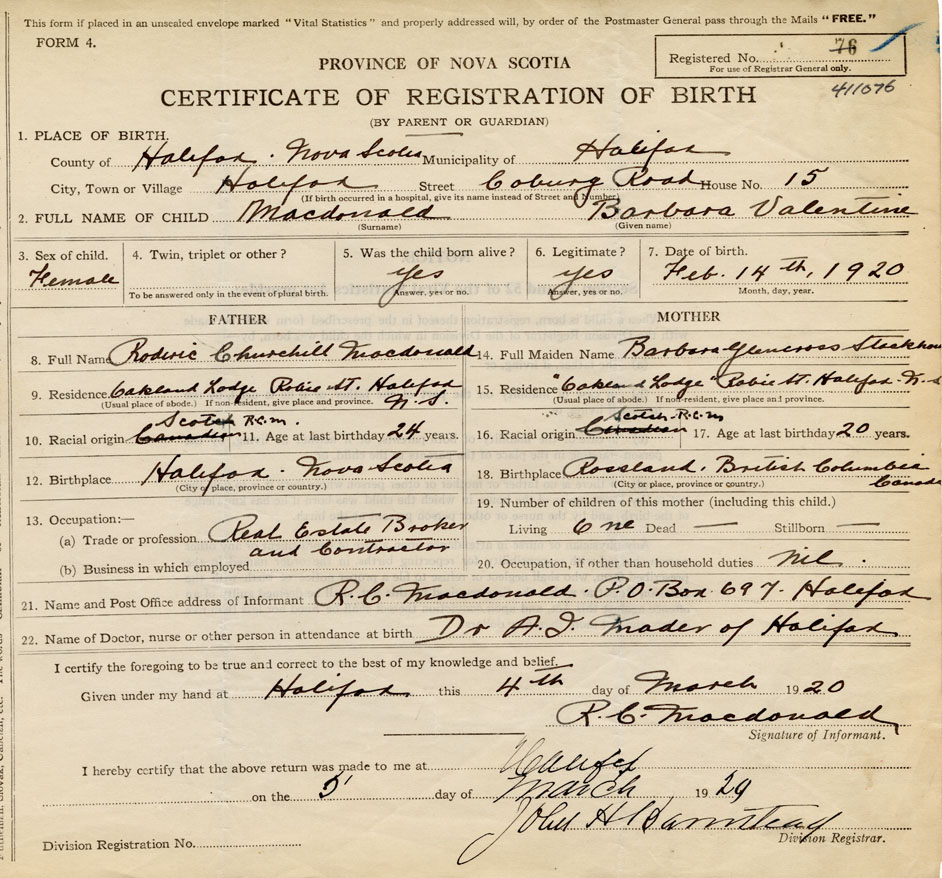 This form if placed in an unsealed envelope marked "Vital Statistics" and properly addressed will, by order of the Postmaster General pass through the Mails "FREE."
FORM 4.
Registered No. 76
For use of Registrar General only.
411076
PROVINCE OF NOVA SCOTIA
CERTIFICATE OF REGISTRATION OF BIRTH
(BY PARENT OR GUARDIAN)
1. PLACE OF BIRTH.
County of Halifax. Nova Scotia Municipality of Halifax
City, Town or Village Halifax Street Coburg Road House No. 15
(If birth occurred in a hospital, give its name instead of Street and Number)
2. FULL NAME OF CHILD Macdonald Barbara Valentine
(Surname) (Given name)
3. Sex of child. 4. Twin, triplet or other? 5. Was the child born alive? 6. Legitimate? 7. Date of birth.
Female yes yes Feb. 14th, 1920
To be answered only in the event of plural birth. Answer, yes or no. Answer, yes or no. Month, day, year.
FATHER MOTHER
8. Full Name Roderic Churchill Macdonald 14. Full Maiden Name Barbara Glencross
9. Residence. Oakland Lodge Robie St. Halifax N.S. 15. Residence "Oakland Lodge" Robie St. Halifax. N.S
(Usual place of abode.) If non-resident, give place and province. (Usual place of abode.) If non-resident, give place and province.
Scotch R.C.M. Scotch R.C.M
10. Racial origin Canadian 11. Age at last birthday 24 years. 16. Racial origin Canadian 17. Age at last birthday 20 years.
12. Birthplace Halifax. Nova Scotia 18. Birthplace Rossland. British Columbia Canada
(City or place, province or country.) (City or place, province or country.)
13. Occupation:— 19. Number of children of this mother (including this child.)
(a) Trade or profession Real Estate Broker and Contractor Living One Dead — Stillborn —
(b) Business in which employed 20. Occupation, if other than household duties nil.
21. Name and Post Office address of Informant R.C. Macdonald. P.O. Box 697. Halifax
22. Name of Doctor, nurse or other person in attendance at birth Dr A.I. Mader of Halifax
I certify the foregoing to be true and correct to the best of my knowledge and belief.
Given under my hand at Halifax this 4th day of March 1920
R.C. Macdonald
Signature of Informant.
I hereby certify that the above return was made to me at Halifax
on the 5 day of March 1920
John H Barnstead
Division Registrar.
Division Registration No.